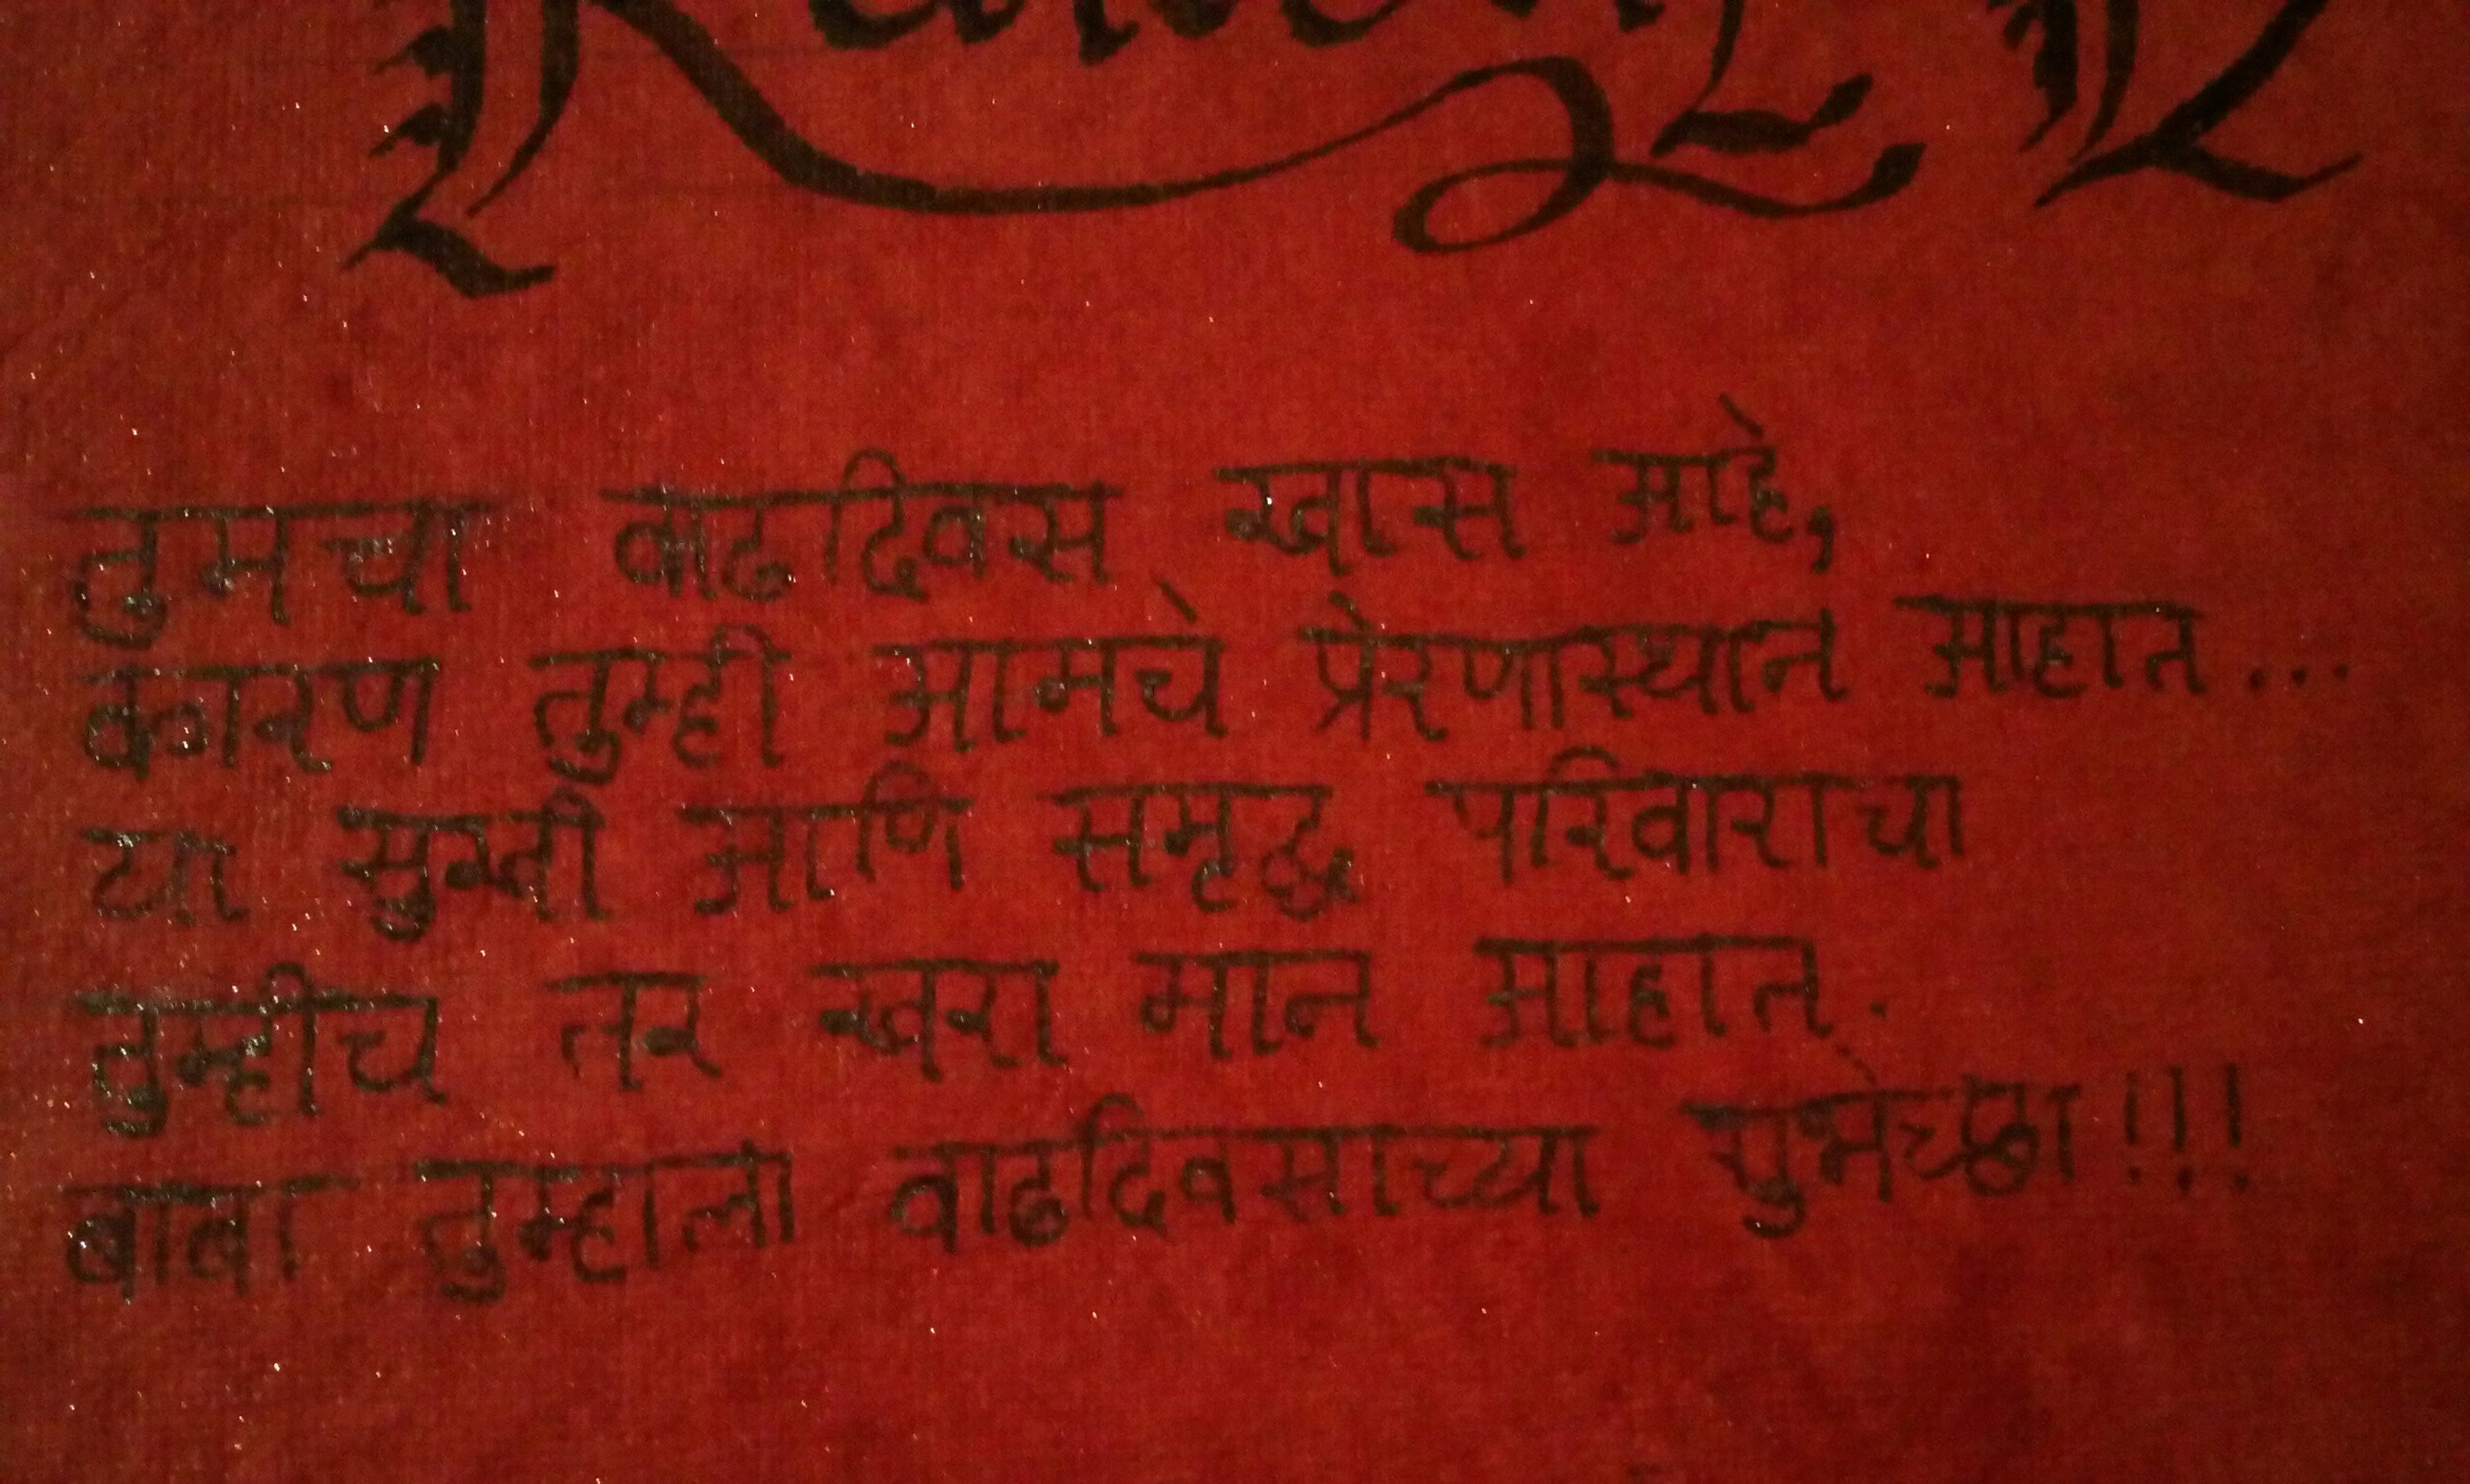 तुमचा वाढदिवस खास आहे,
कारण तुम्ही आमचे प्रेरणास्थान आहात...
या सुखी आणि समृद्ध परिवाराचा
तुम्हीच तर खरा मान आहात.
बाबा तुम्हाला वाढदिवसाच्या शुभेच्छा!!!